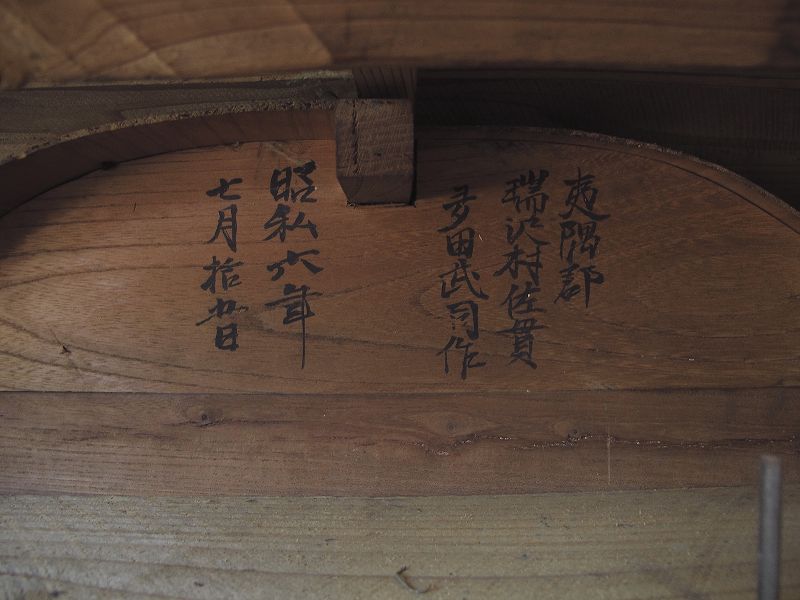 夷隅郡
瑞沢村佐貫
多田武司作
昭和六年
七月拾九日